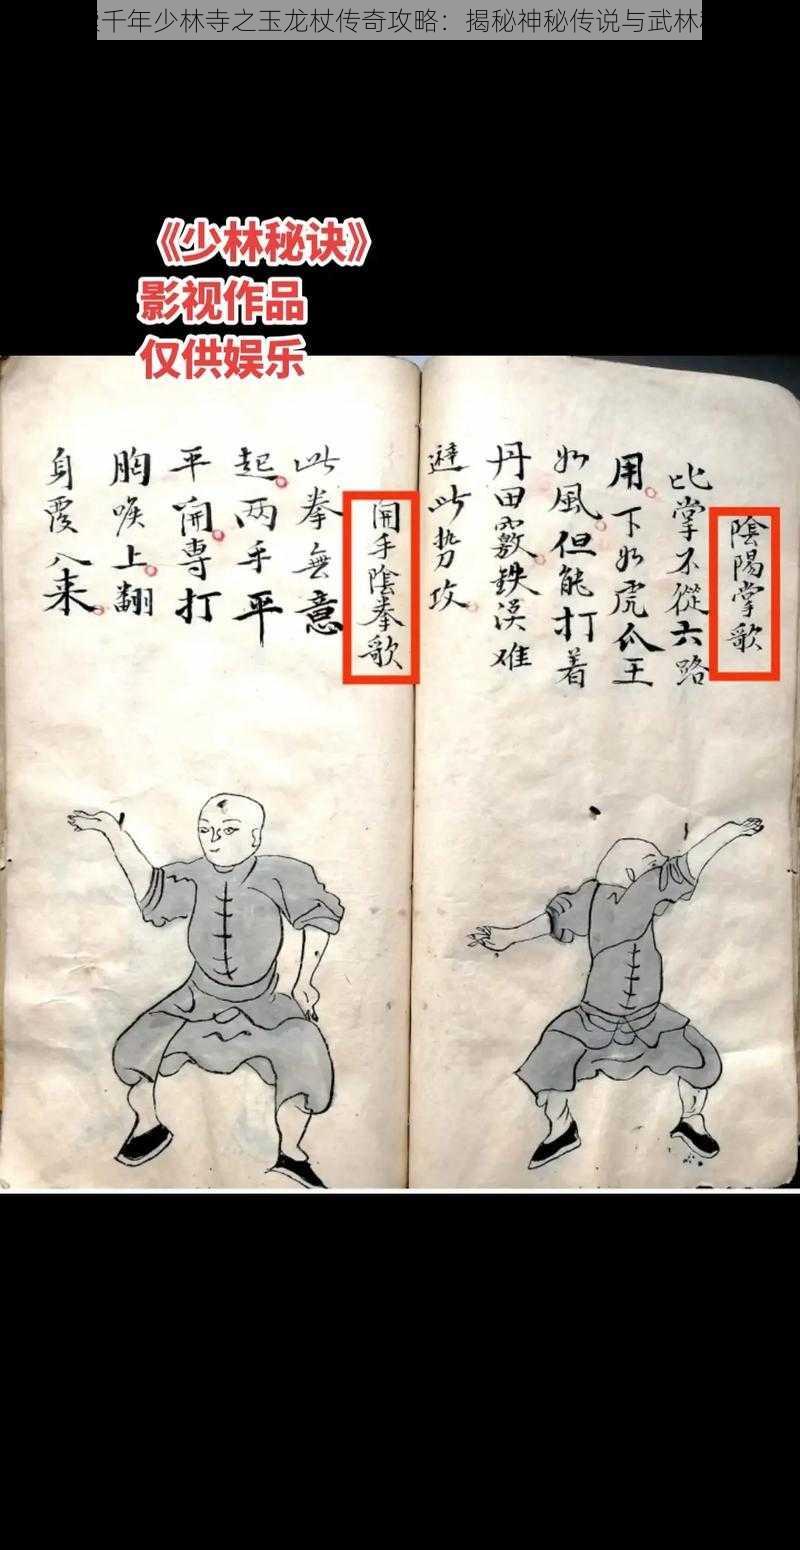 千年少林寺之玉龙杖传奇攻略：揭秘神秘传说与武林
《少林秘诀》
影视作品
仅供娱乐
陰陽掌歌
比掌不從六路
用下如虎爪王
如風但能打着
丹田竅鉄漢难
避此势攻
開手陰拳歌
此拳無意
起两手平
平開專打
胸喉上翻
身覆八来